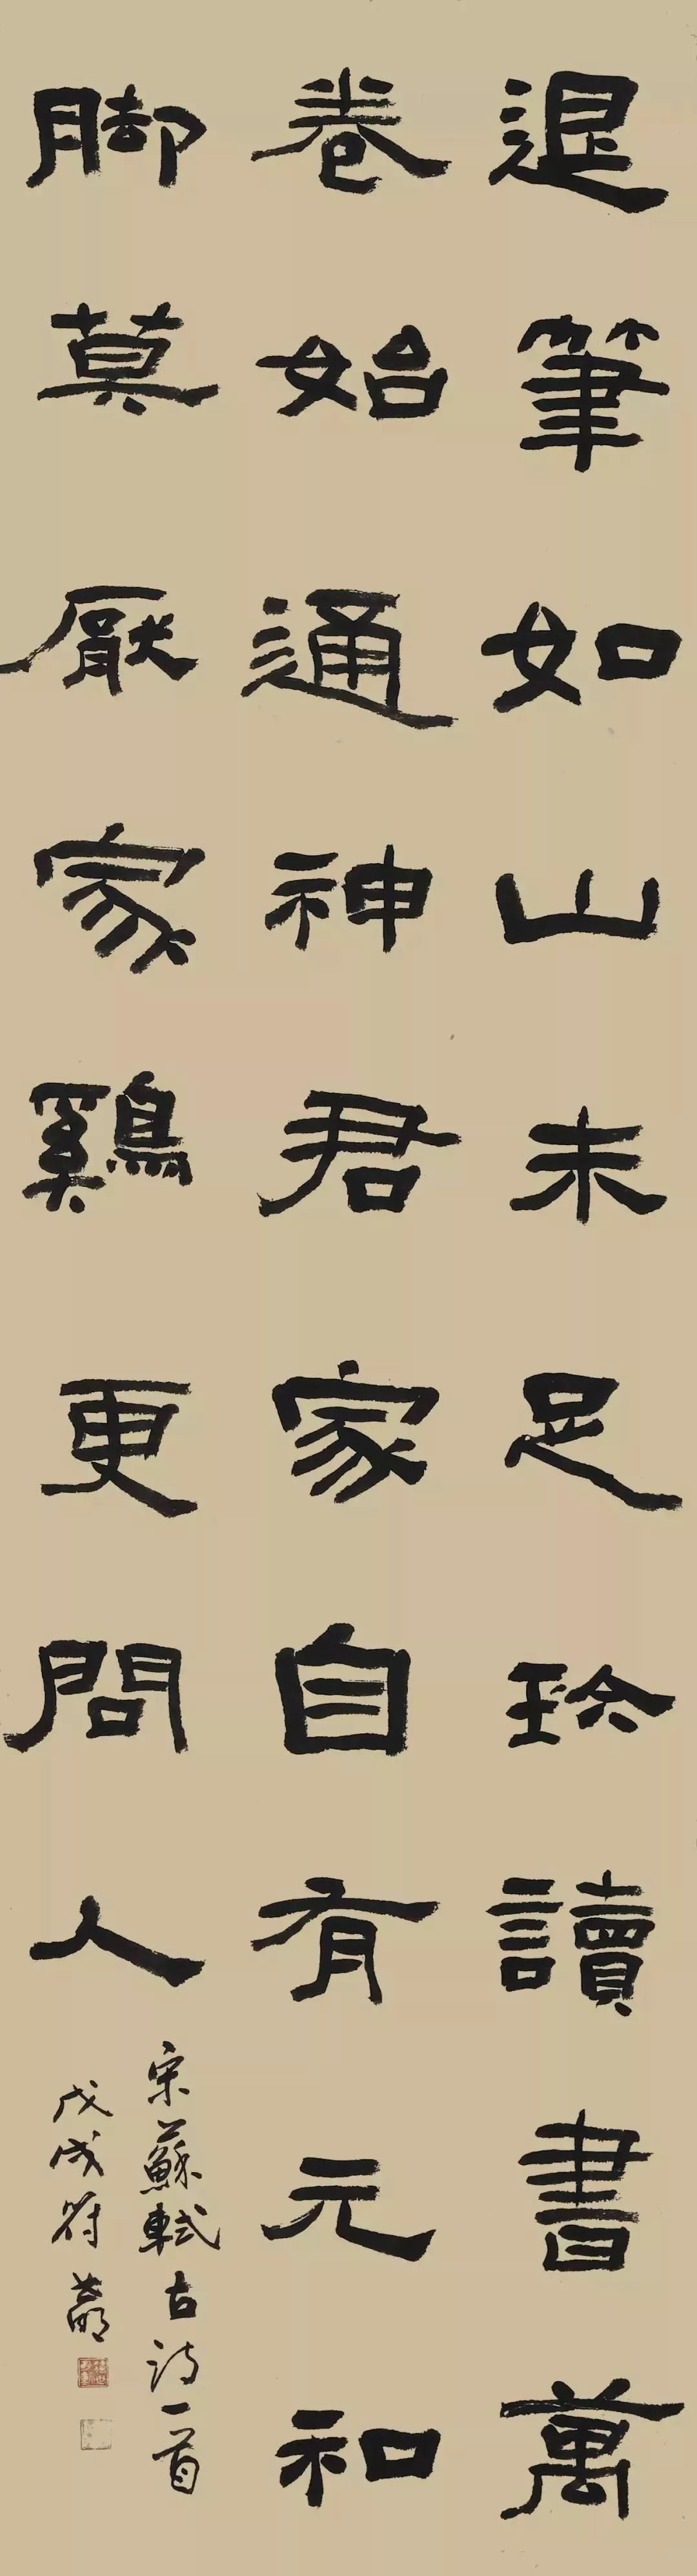 退筆如山未足珍讀書萬
卷始通神君家自有元和
脚莫厭家雞更問人
宋蘇軾古詩一首
戊戌符